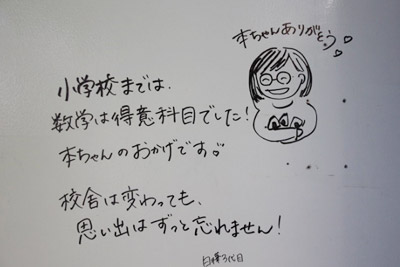 本ちゃんありがとう
小学校までは、
数学は得意科目でした!
本ちゃんのおかげです。
校舎は変わっても、
思い出はずっと忘れません!